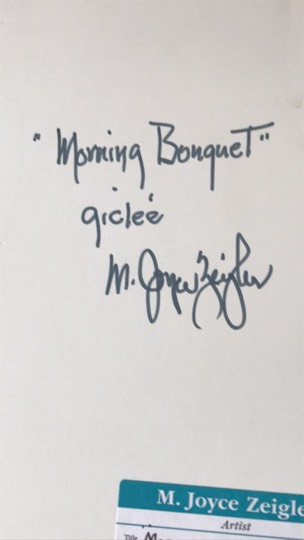 "Morning Bouquet"
giclée
M. Joyce Zeigler
M. Joyce Zeigle
Artist
Title